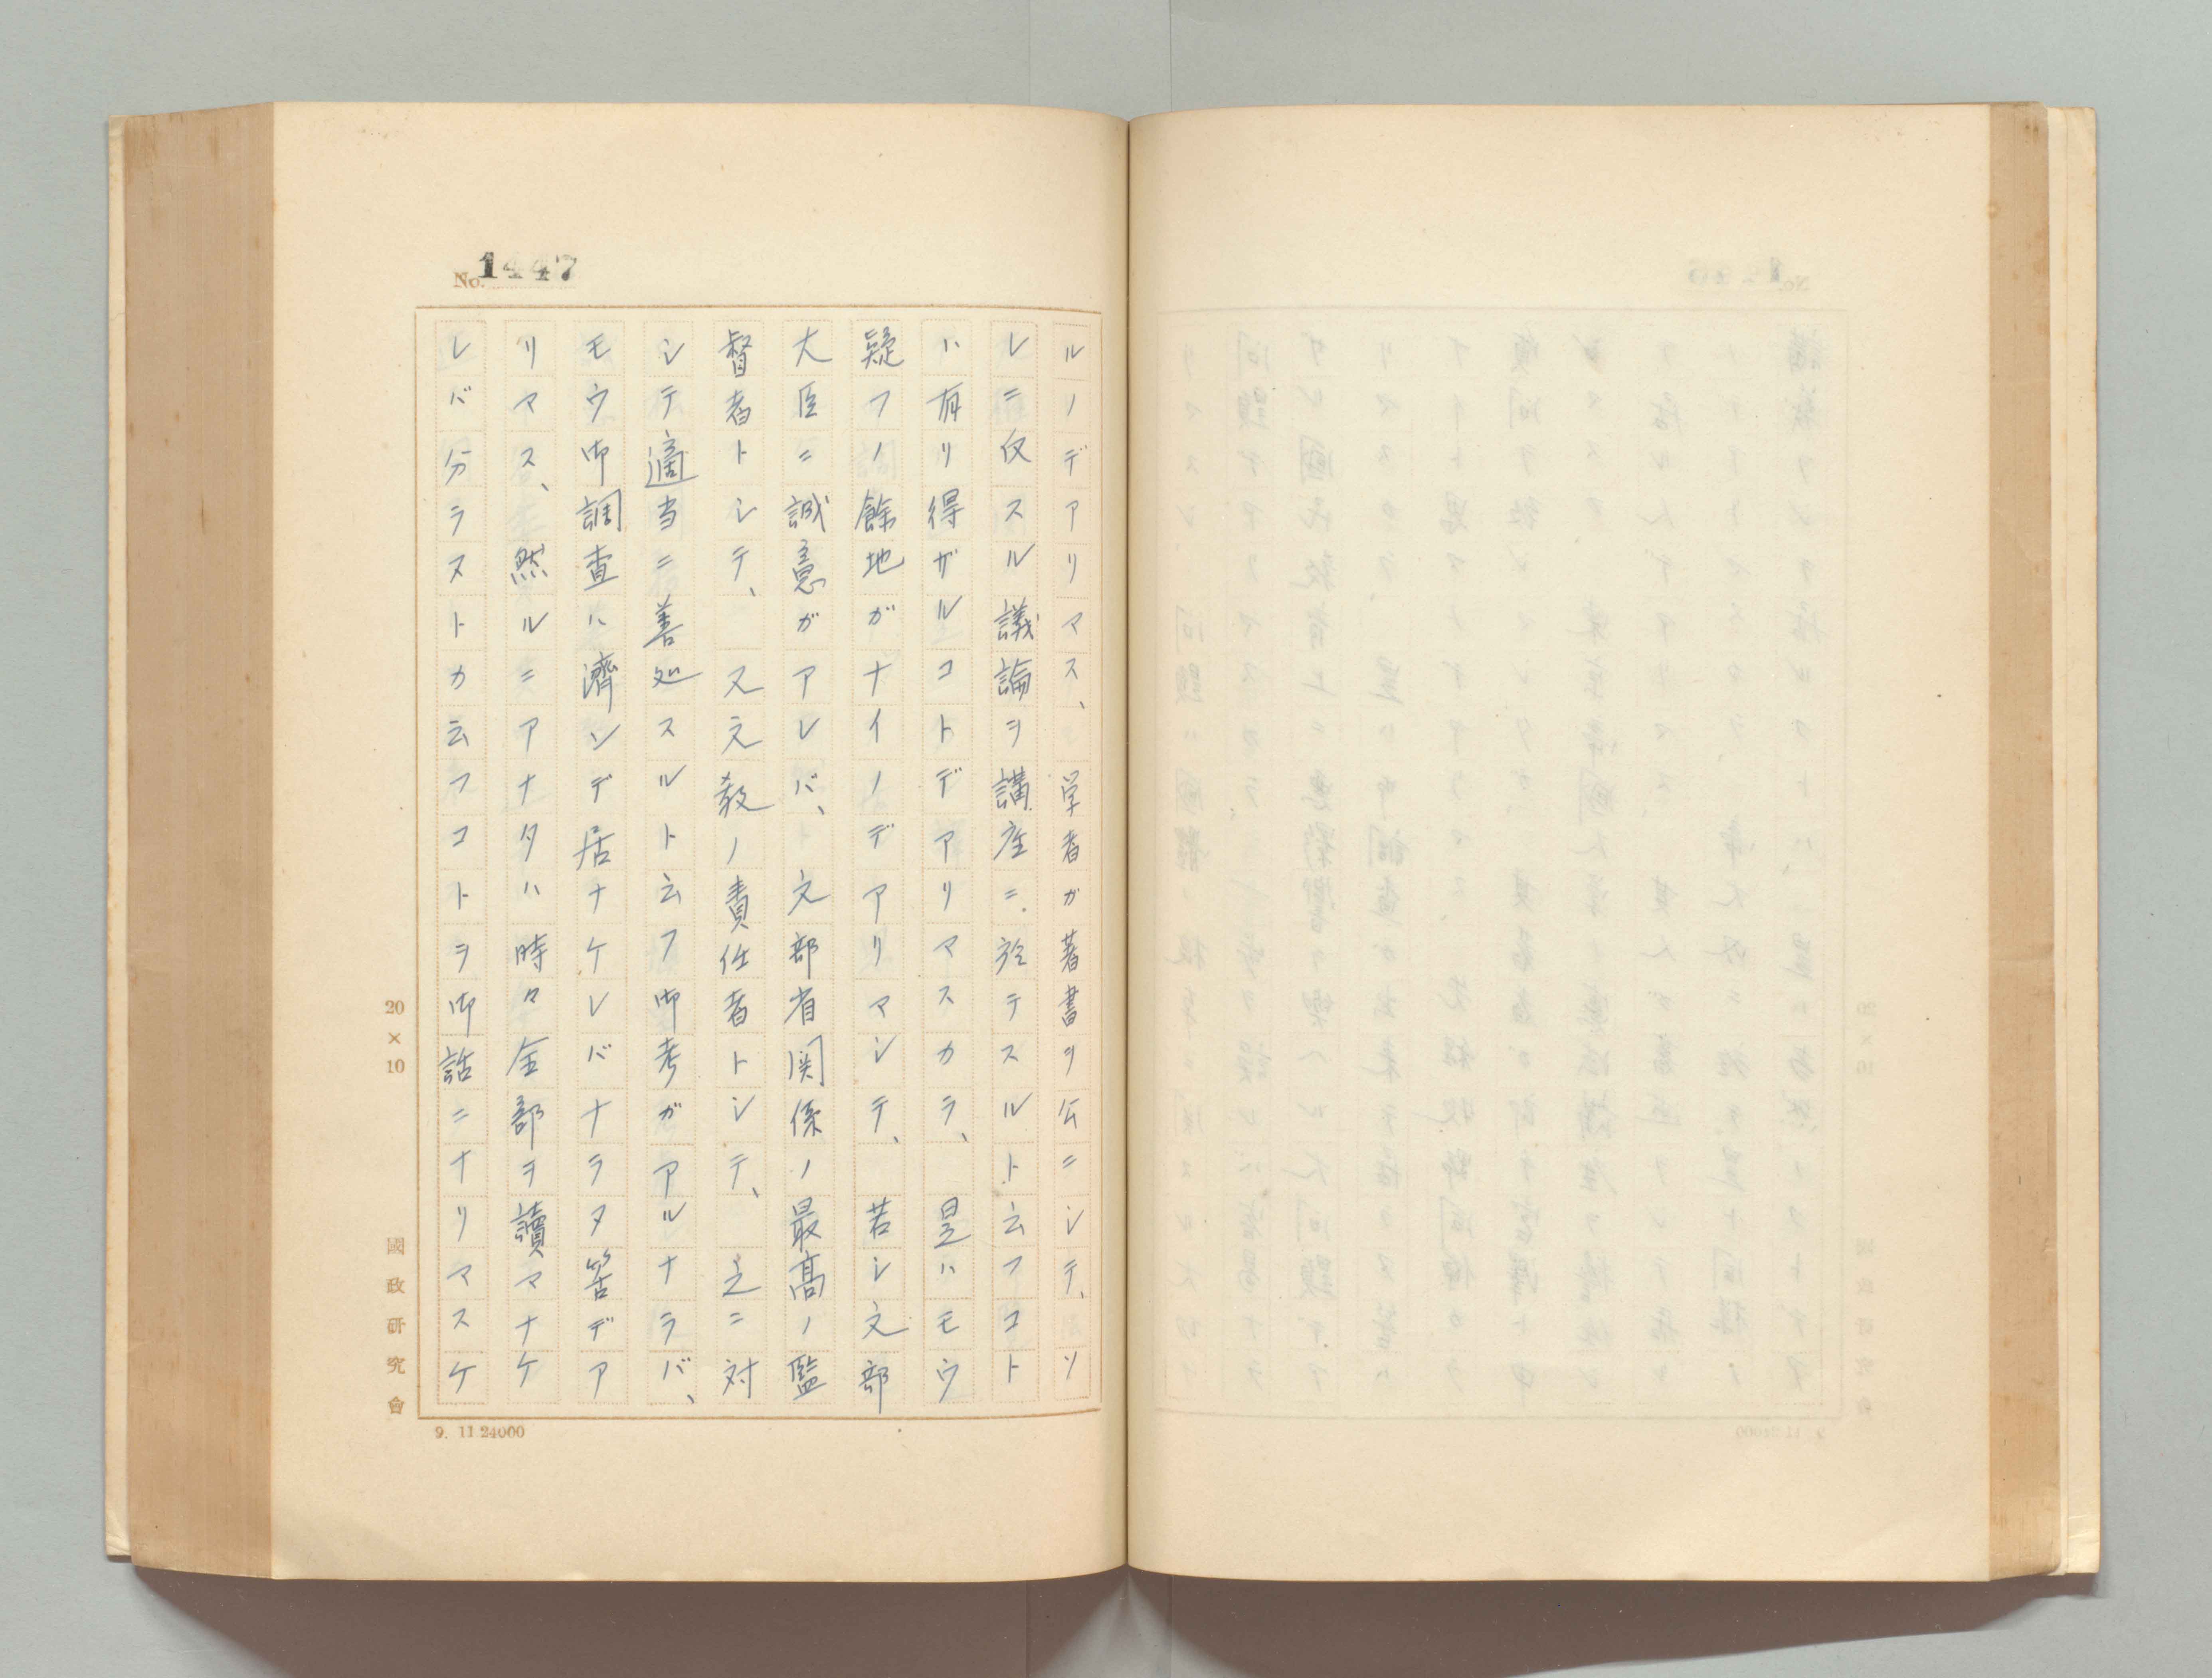 No. 1447
ルノデアリマス、学者ガ著書ヲ公ニシテ、ソ
レニ仅スル議論ヲ講座ニ於テスルト云フコト
ハ有リ得ザルコトデアリマスカラ、是ハモウ
疑フノ餘地ガナイノデアリマシテ、若シ文部
大臣ニ誠意ガアレバ、文部省関係ノ最高ノ監
督者トシテ、又文教ノ責任者トシテ、之ニ対
シテ適当ニ善処スルト云フ御考ガアルナラバ、
モウ御調査ハ濟ンデ居ナケレバナラヌ筈デア
リマス、然ルニアナタハ時々全部ヲ讀マナケ
レバ分ラヌトカ云フコトヲ御話ニナリマスケ
20×10
國政研究會
9. 11 24000